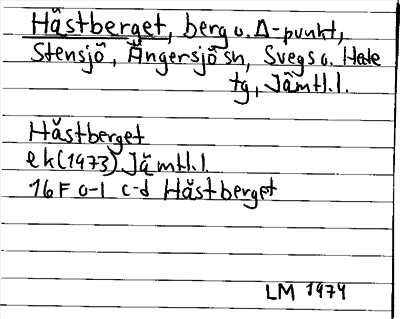 Hästberget, berg o. Δ-punkt,
Stensjö, Ängersjö sn, Svegs o. Hede
tg, Jämtl.l.
Hästberget
ek (1973) Jämtl.l.
16 F 0-1 c-d Hästberget
LM 1974